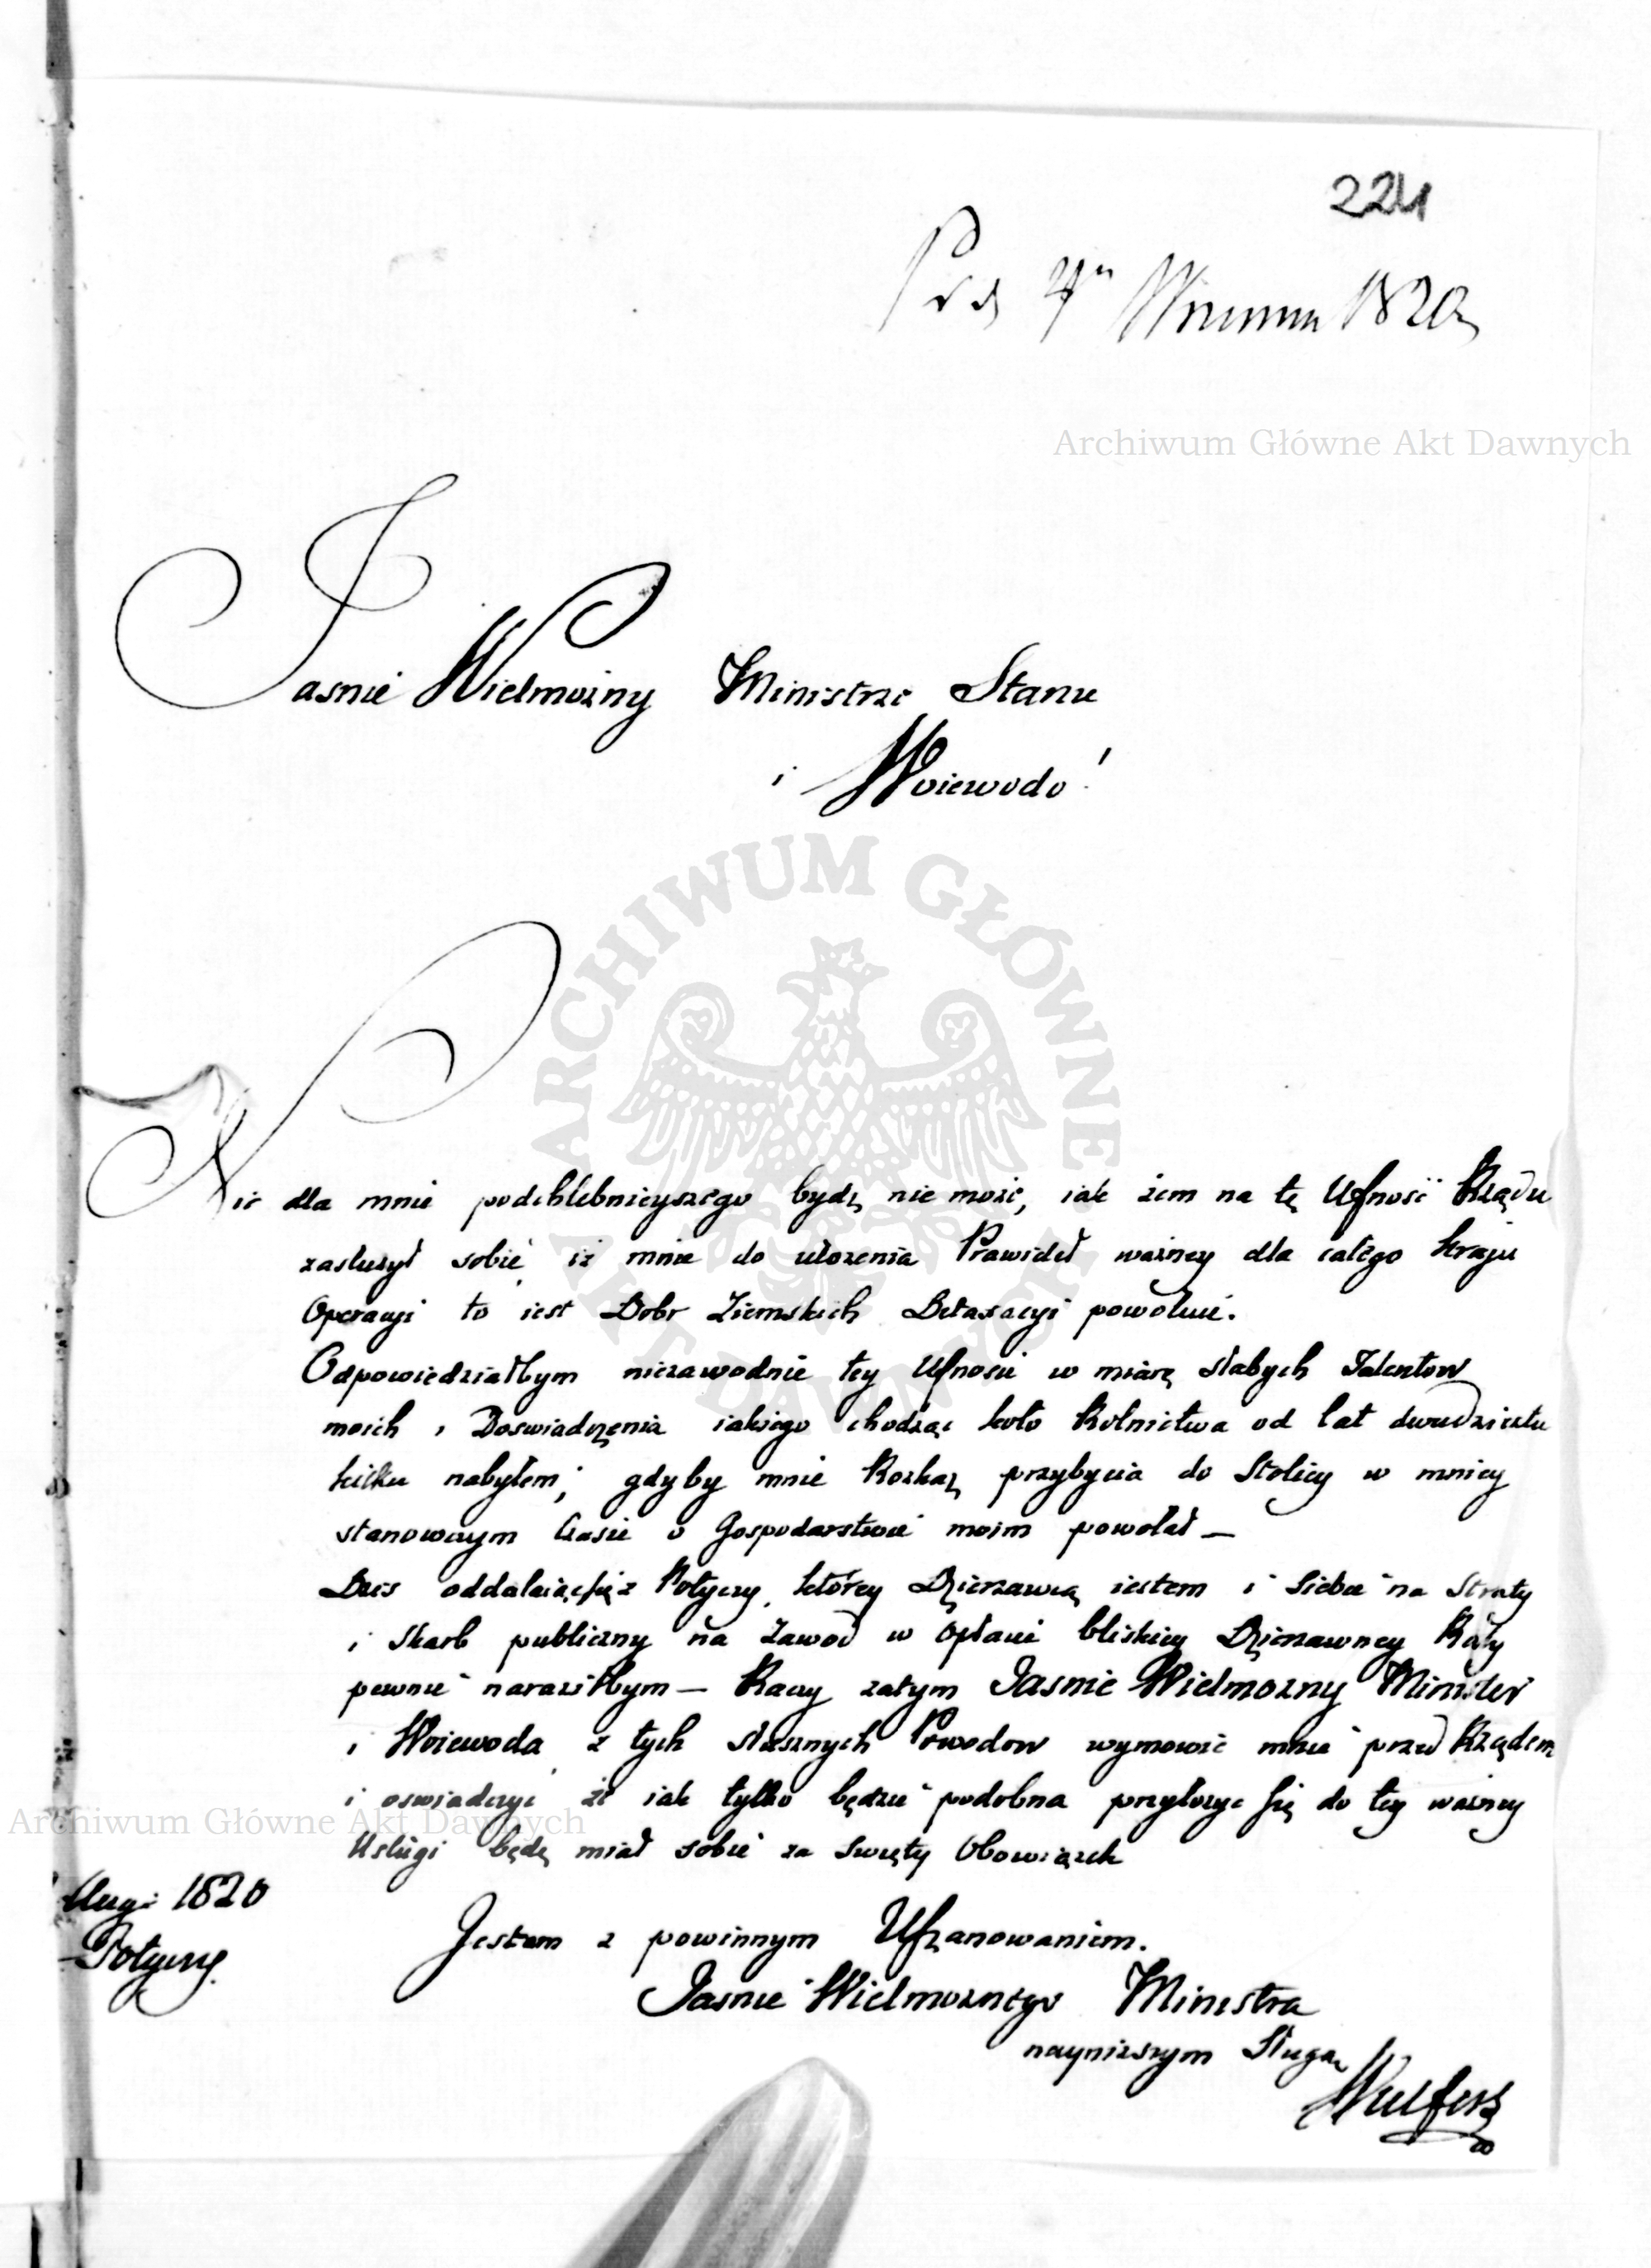 224
4n Wrzesnia 1820
Archiwum Główne Akt Dawnych
Jasnie Wielmożny Ministrze Stanu
i Woiewodo!
ARCHIWUM GŁÓWNE AKT DAWNYCH
Nic dla mnie podchlebnieyszego bydz nie może, iak żem na tę Ufność Rządu
zasłużył sobie iż mnie do ułożenia Prawideł ważney dla całego kraju
Operacyi to iest Dobr Ziemskich Detaxacyi powołuie.
Odpowiedziałbym niezawodnie tey Ufnosci w miarę słabych Talentow
moich i Doswiadczenia iakiego chodząc koło Rolnictwa od lat dwudziestu
kilku nabyłem; gdyby mnie Rozkaz przybycia do Stolicy w mniey
stanowczym Czasie o Gospodarstwie moim powołał —
Dzis oddalaiąc się z Potyczy, ktorey Dzierzawcą iestem i Siebie na Straty
i Skarb publiczny na Zawod w Opłacie bliskiey Dzierzawney Raty
pewnie naraziłbym — Raczy zatym Jasnie Wielmozny Minister
i Woiewoda z tych słusznych Powodow wymowić mnie przed Rządem
i oswiadczyć że iak tylko będzie podobna przyłozyc się do tey wazney
Archiwum Główne Akt Dawnych
Usługi będę miał sobie za Swięty Obowiązek
Augi 1820
Potyczy.
Jestem z powinnym Uszanowaniem.
Jasnie Wielmoznego Ministra
naynizszym Sługą
Wulfers